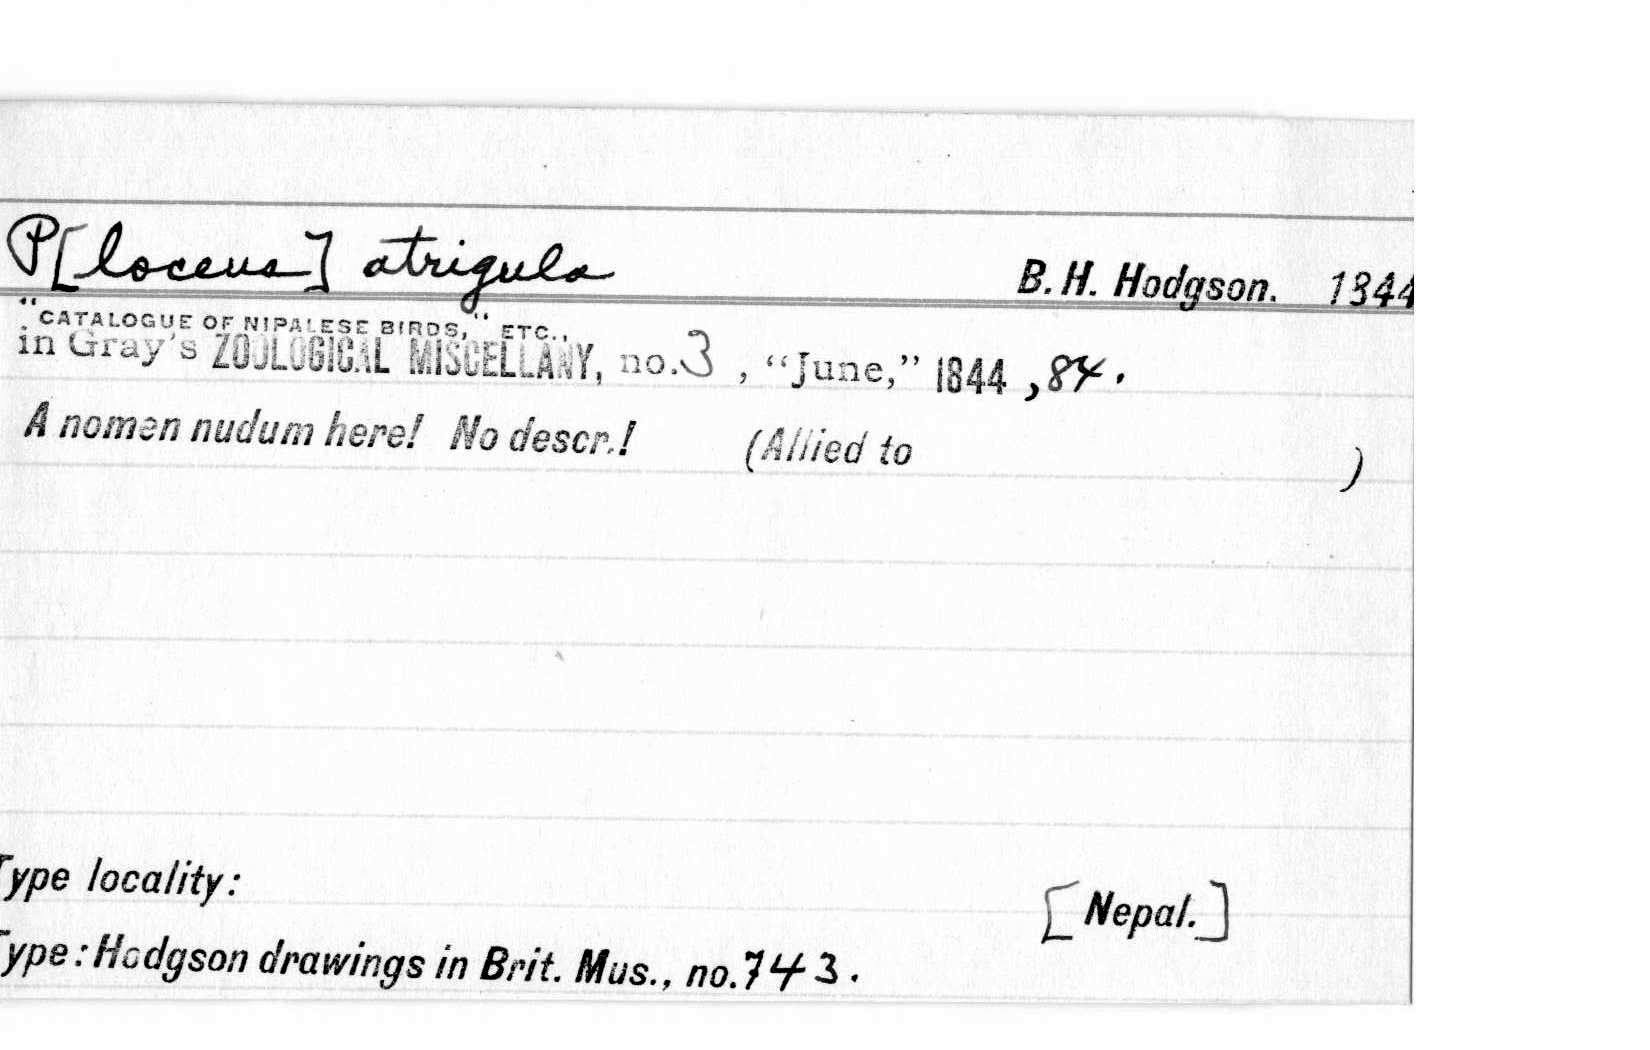 P[loceus] atrigula B. H. Hodgson. 1844
"CATALOGUE OF NIPALESE BIRDS," ETC.,
in Gray's ZOOLOGICAL MISCELLANY, no.3, "June," 1844, 84.
A nomen nudum here! No descr.! (Allied to )
Type locality: [Nepal.]
Type: Hodgson drawings in Brit. Mus., no.743.